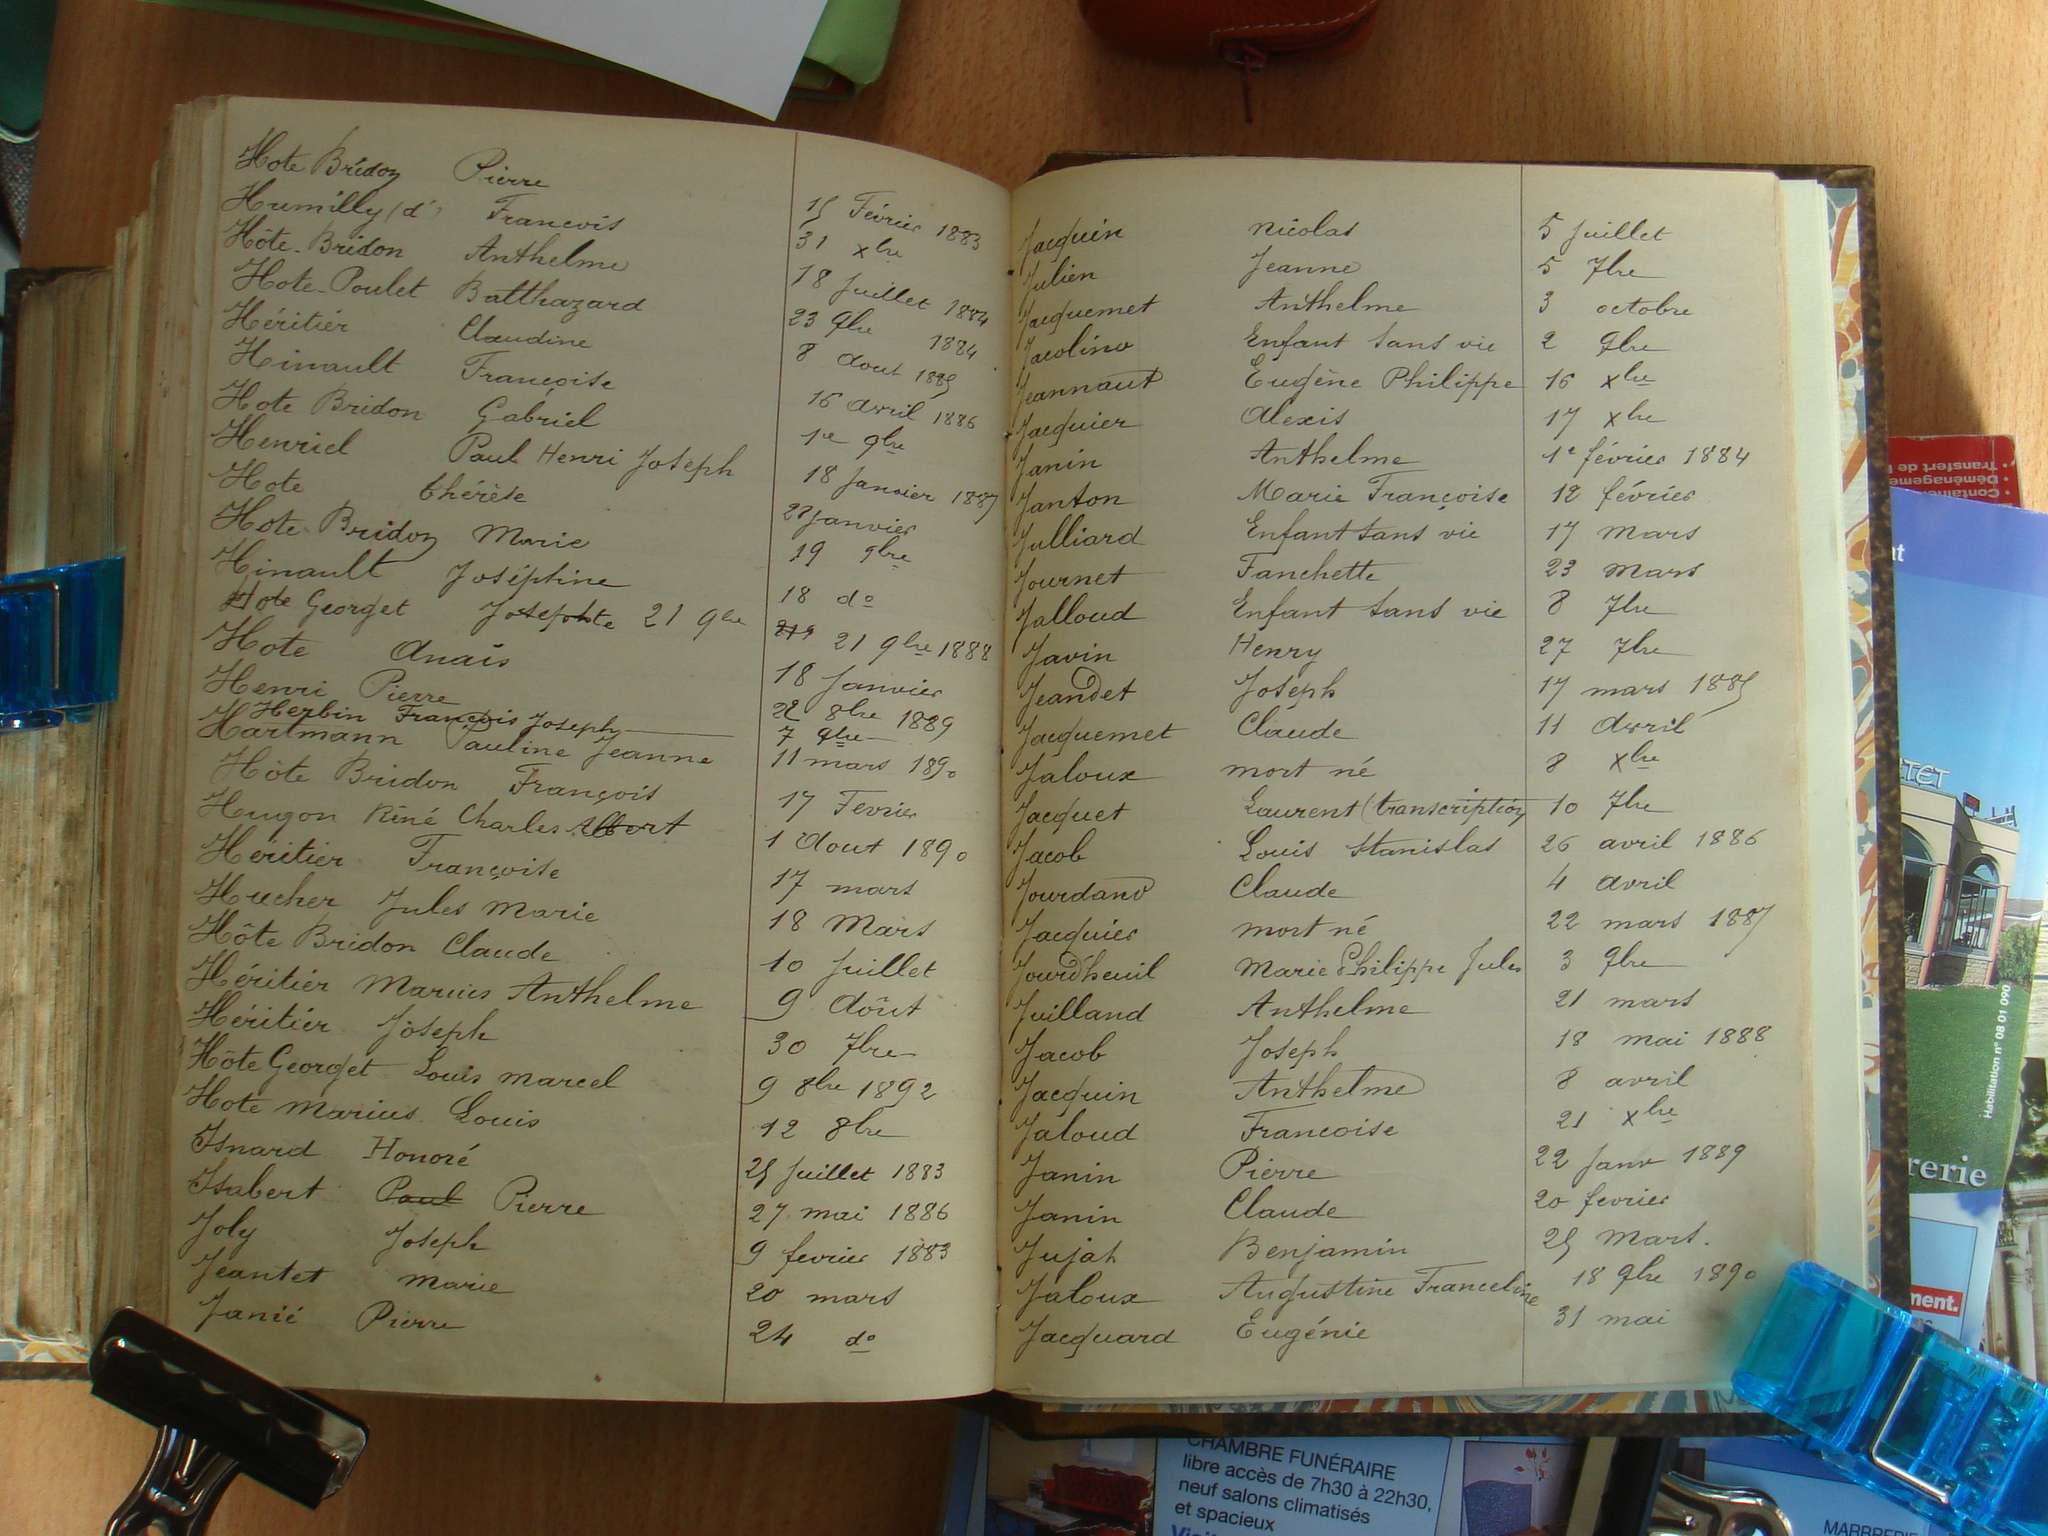 Hote Bridon Pierre 15 Février 1883
Humilly (d') François 31 xbre
Hôte-Bridon Anthelme 18 Juillet 1884
Hote-Poulet Balthazard 23 9bre 1884
Héritier Claudine 8 Aout 1885
Hinault Françoise 16 Avril 1886
Hote Bridon Gabriel 1er 9bre
Henriel Paul Henri Joseph 18 Janvier 1887
Hote thérèse 22 Janvier
Hote Bridon Marie 19 9bre
Hinault Joséphine 18 do
Hote Georget Josephte 21 9bre 21 9bre 1888
Hote Anaïs 18 Janvier
Henri Pierre 22 8bre 1889
Herbin François Joseph 7 9bre
Hartmann Pauline Jeanne 11 mars 1890
Hôte Bridon François 17 Fevrier
Hugon Réné Charles Albert 1 Aout 1890
Héritier Françoise 17 mars
Hucher Jules Marie 18 Mars
Hôte Bridon Claude 10 Juillet
Héritier Marius Anthelme 9 Août
Héritier Joseph 30 7bre
Hôte Georget Louis marcel 9 8bre 1892
Hote Marius Louis 12 8bre
Isnard Honoré 25 Juillet 1883
Isabert Paul Pierre 27 mai 1886
Joly Joseph 9 fevrier 1883
Jeantet marie 20 mars
Janié Pierre 24 do
Jacquin Nicolas 5 Juillet
Julien Jeanne 5 7bre
Jacquemet Anthelme 3 octobre
Jacolino Enfant sans vie 2 9bre
Jeannaut Eugène Philippe 16 xbre
Jacquier Alexis 17 xbre
Janin Anthelme 1er février 1884
Janton Marie Françoise 12 février
Julliard Enfant sans vie 17 mars
Journet Fanchette 23 mars
Jalloud Enfant sans vie 8 7bre
Javin Henry 27 7bre
Jeandet Joseph 17 mars 1885
Jacquemet Claude 11 Avril
Jaloux mort né 8 xbre
Jacquet Laurent (transcription 10 7bre
Jacob Louis Stanislas 26 avril 1886
Jourdano Claude 4 Avril
Jacquier mort né 22 mars 1887
Jourd'heuil Marie Philippe Jules 3 9bre
Juilland Anthelme 21 mars
Jacob Joseph 18 mai 1888
Jacquin Anthelme 8 avril
Jaloud Francoise 21 xbre
Janin Pierre 22 Janv 1889
Janin Claude 20 fevrier
Jujat Benjamin 25 Mars.
Jaloux Augustine Franceline 18 9bre 1890
Jacquard Eugénie 31 mai
Transfert de
Déménageme
Contain
Habilitation n° 08 01 090
rerie
ment.
CHAMBRE FUNÉRAIRE
libre accès de 7h30 à 22h30,
neuf salons climatisés
et spacieux
MARBRERI